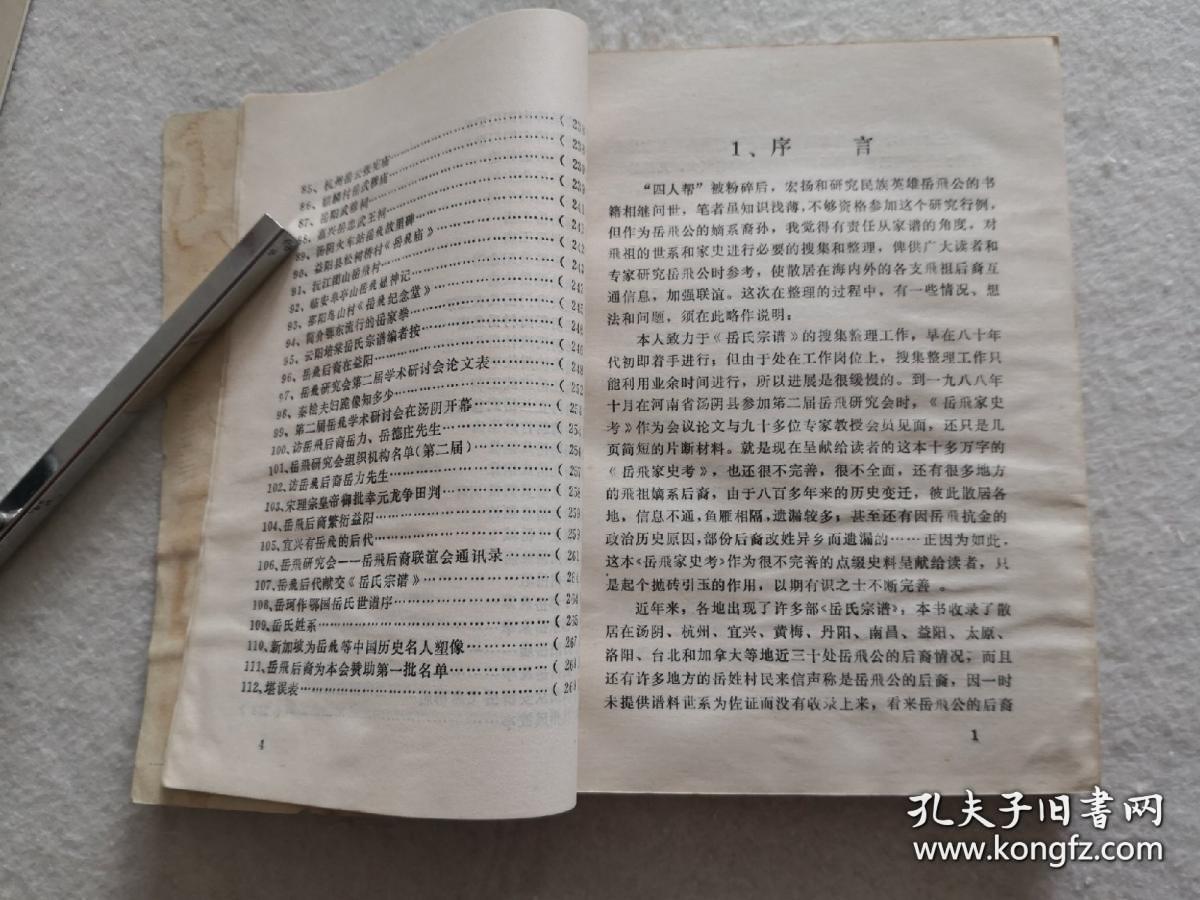 85、杭州岳云张宪庙……………………( 23
86、麒麟村岳武穆庙……………………( 238
87、岳阳武穆祠……………………( 239
88、嘉兴岳忠武王祠……………………( 239
89、汤阴火车站岳飛故里碑……………………( 241
90、益阳县松树桥村《岳飛庙》……………………( 24
91、沅江团山岳飛村……………………( 242
92、临安皋亭山岳飛显神记……………………( 243
93、邵阳岛山村《岳飛纪念堂》……………………( 243
94、简介鄂东流行的岳家拳……………………( 245
95、云阳培棠岳氏宗谱编者按……………………( 246
96、岳飛后裔在益阳……………………( 246
97、岳飛研究会第二届学术研讨会论文表……………………( 248
98、秦桧夫妇跪像知多少……………………( 252
99、第二届岳飛学术研讨会在汤阴开幕……………………( 254
100、访岳飛后裔岳力、岳德庄先生……………………( 254
101、岳飛研究会组织机构名单(第二届)……………………( 256
102、访岳飛后裔岳力先生……………………( 257
103、宋理宗皇帝御批幸元龙争田判……………………( 258
104、岳飛后裔繁衍益阳……………………( 259
105、宜兴有岳飛的后代……………………( 259
106、岳飛研究会——岳飛后裔联谊会通讯录……………………( 261
107、岳飛后代献交《岳氏宗谱》……………………( 264
108、岳珂作鄂国岳氏世谱序……………………( 264
109、岳氏姓系……………………( 265
110、新加坡为岳飛等中国历史名人塑像……………………( 267
111、岳飛后裔为本会赞助第一批名单……………………( 268
112、堪误表……………………( 26
4
1、序 言
“四人帮”被粉碎后，宏扬和研究民族英雄岳飛公的书
籍相继问世，笔者虽知识浅薄，不够资格参加这个研究行例，
但作为岳飛公的嫡系裔孙，我觉得有责任从家谱的角度，对
飛祖的世系和家史进行必要的搜集和整理，俾供广大读者和
专家研究岳飛公时参考，使散居在海内外的各支飛祖后裔互
通信息，加强联谊。这次在整理的过程中，有一些情况、想
法和问题，须在此略作说明：
本人致力于《岳氏宗谱》的搜集整理工作，早在八十年
代初即着手进行；但由于处在工作岗位上，搜集整理工作只
能利用业余时间进行，所以进展是很缓慢的。到一九八八年
十月在河南省汤阴县参加第二届岳飛研究会时，《岳飛家史
考》作为会议论文与九十多位专家教授会员见面，还只是几
页简短的片断材料。就是现在呈献给读者的这本十多万字的
《岳飛家史考》，也还很不完善，很不全面，还有很多地方
的飛祖嫡系后裔，由于八百多年来的历史变迁，彼此散居各
地，信息不通，鱼雁相隔，遗漏较多；甚至还有因岳飛抗金的
政治历史原因，部份后裔改姓异乡而遗漏的……正因为如此，
这本《岳飛家史考》作为很不完善的点缀史料呈献给读者，只
是起个抛砖引玉的作用，以期有识之士不断完善。
近年来，各地出现了许多部《岳氏宗谱》；本书收录了散
居在汤阴、杭州、宜兴、黄梅、丹阳、南昌、益阳、太原、
洛阳、台北和加拿大等地近三十处岳飛公的后裔情况，而且
还有许多地方的岳姓村民来信声称是岳飛公的后裔，因一时
未提供谱料世系为佐证而没有收录上来，看来岳飛公的后裔
1
孔夫子旧书网
www.kongfz.com